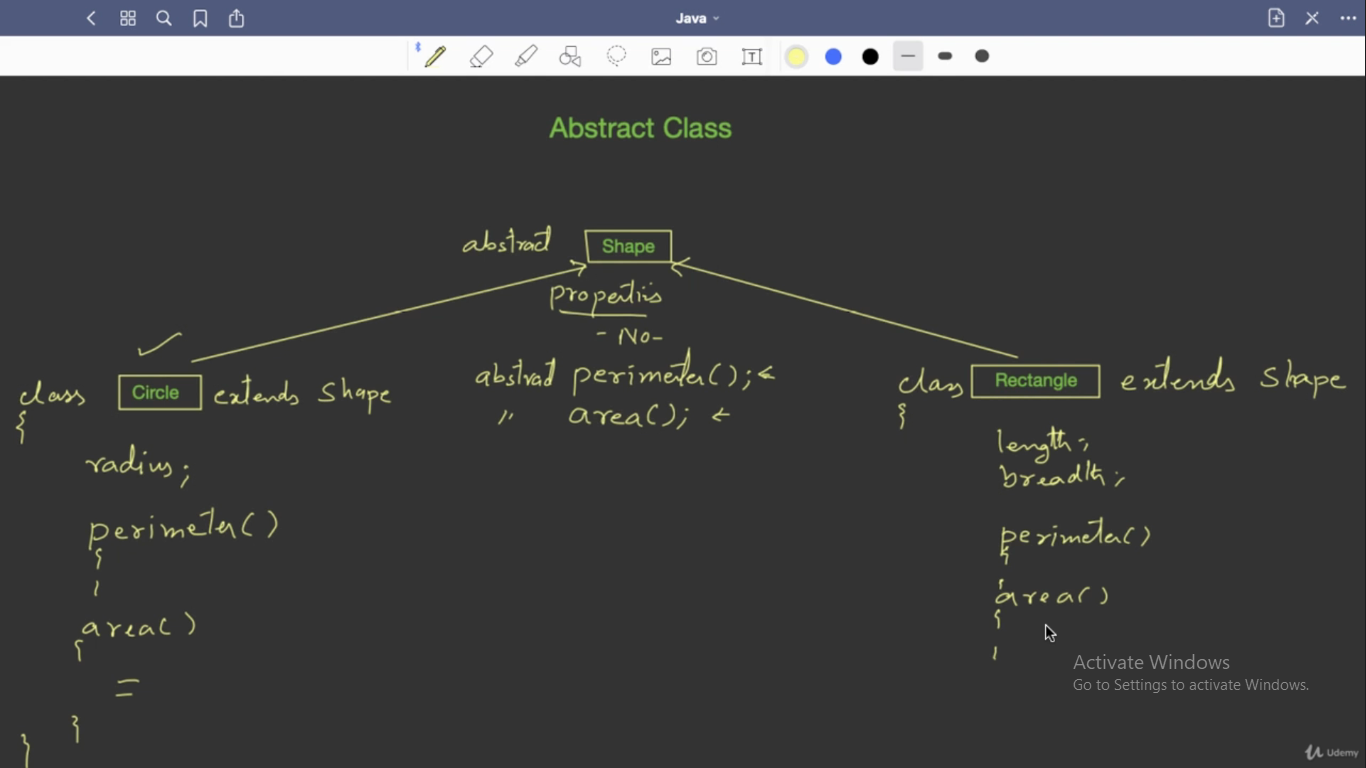 Java
T
Abstract Class
abstract Shape
properties
- No-
abstract perimeter();
" area();
class Circle extends Shape
{
radius;
perimeter()
{
area()
{
=
}
}
class Rectangle extends Shape
{
length;
breadth;
perimeter()
{
area()
{
Activate Windows
Go to Settings to activate Windows.
Udemy